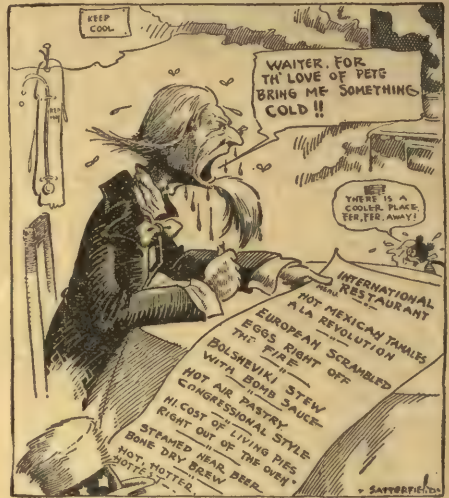 KEEP
COOL
WAITER, FOR
TH' LOVE OF PETE
BRING ME SOMETHING
COLD!!
THERE IS A
COOLER PLACE,
FER, FER, AWAY!
MENU
INTERNATIONAL
RESTAURANT
HOT MEXICAN TAMALES
A LA REVOLUTION
EUROPEAN SCRAMBLED
EGGS RIGHT OFF
THE FIRE
BOLSHEVIKI STEW
WITH BOMB SAUCE
HOT AIR PASTRY
CONGRESSIONAL STYLE
HI. COST OF LIVING PIES
RIGHT OUT OF THE OVEN
STEAMED NEAR BEER
BONE DRY BREW
HOT, HOTTER
HOTTEST
SATTERFIELD